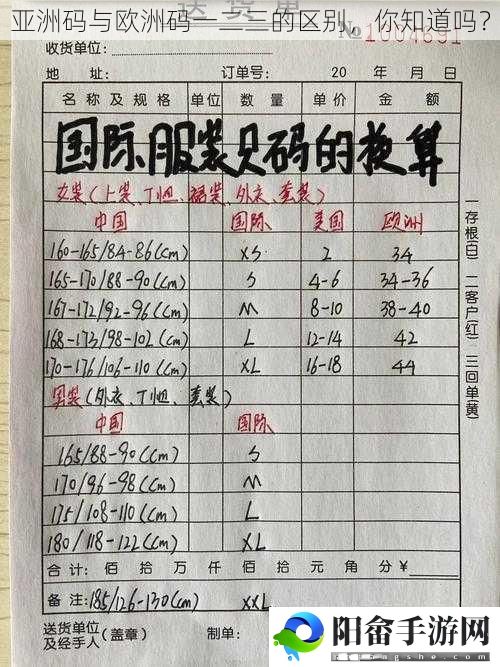 亚洲码与欧洲码一二三的区别，你知道吗？
送货单
No 1004691
收货单位：
地址：
订单号： 20 年 月 日
名称及规格 单位 数量 单价 金额
国际服装尺码的换算
女装（上装、T恤、裙装、外衣、套装）
中国 国际 美国 欧洲
160-165/84-86(cm) XS 2 34
165-170/88-90(cm) S 4-6 34-36
167-172/92-96(cm) M 8-10 38-40
168-173/98-102(cm) L 12-14 42
170-176/106-110(cm) XL 16-18 44
男装（外衣、T恤、套装）
中国 国际
165/88-90(cm) S
170/96-98(cm) M
175/108-110(cm) L
180/118-122(cm) XL
合计： 佰 拾 万 仟 佰 拾 元 角 分 ¥
备注：185/126-130(cm) XXL
送货单位及经手人（盖章）
收货单位
一存根(白) 二客户(红) 三回单(黄)
阳畲手游网